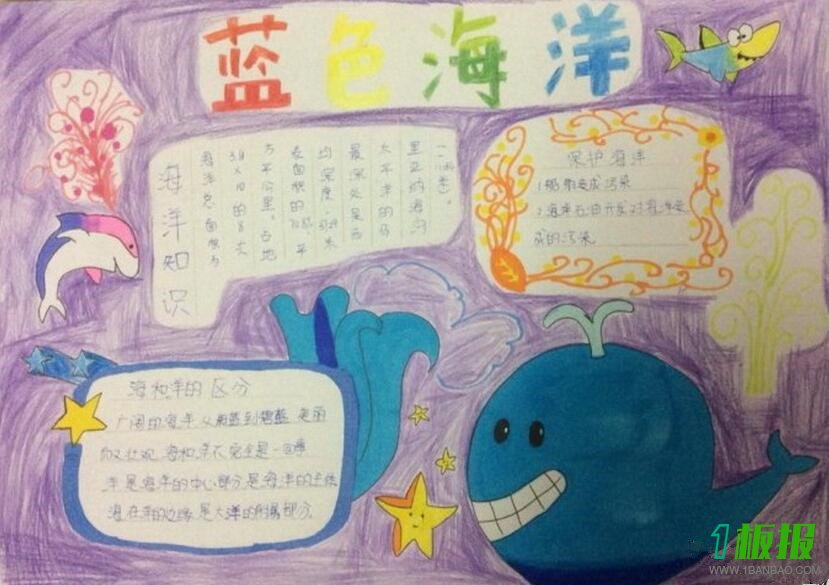 蓝色海洋
海洋知识
海洋总面积为
3.8×10的8次
方平公里。占地
表面积的 平
均深度
最深处是西
太平洋的马
里亚纳海沟
米)。
保护海洋
1船舶造成污染
2海洋石油开发对海洋造
成的污染
海和洋的区分
广阔的海洋从蔚蓝到碧蓝 美丽
而又壮观 海和洋不完全是一回事
洋是海洋的中心部分是海洋的主体
海在洋的边缘是大洋的附属部分
1板报
WWW.1BANBAO.COM